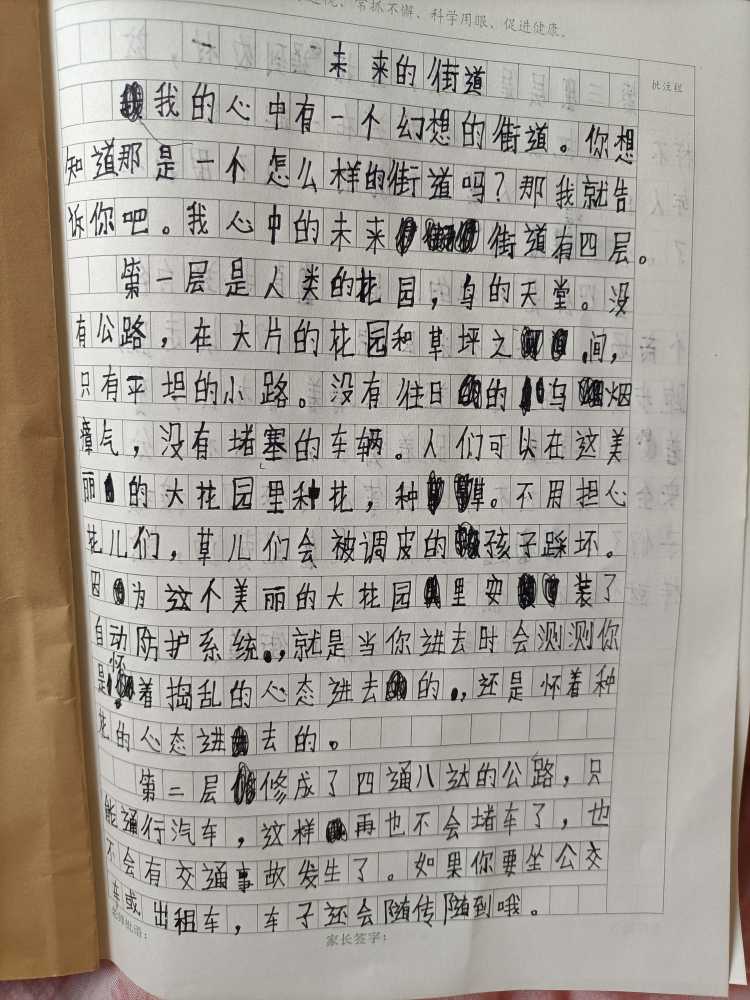 常抓不懈、科学用眼、促进健康。
批注栏
未来的街道
我的心中有一个幻想的街道。你想
知道那是一个怎么样的街道吗？那我就告
诉你吧。我心中的未来街道有四层。
第一层是人类的花园，鸟的天堂。没
有公路，在大片的花园和草坪之间，
只有平坦的小路。没有往日的乌烟
瘴气，没有堵塞的车辆。人们可以在这美
丽的大花园里种花，种草。不用担心
花儿们，草儿们会被调皮的孩子踩坏。
因为这个美丽的大花园里安装了
自动防护系统，就是当你进去时会测测你
是怀着捣乱的心态进去的，还是怀着种
花的心态进去的。
第二层修成了四通八达的公路，只
能通行汽车，这样再也不会堵车了，也
不会有交通事故发生了。如果你要坐公交
车或出租车，车子还会随传随到哦。
老师批语：
家长签字：